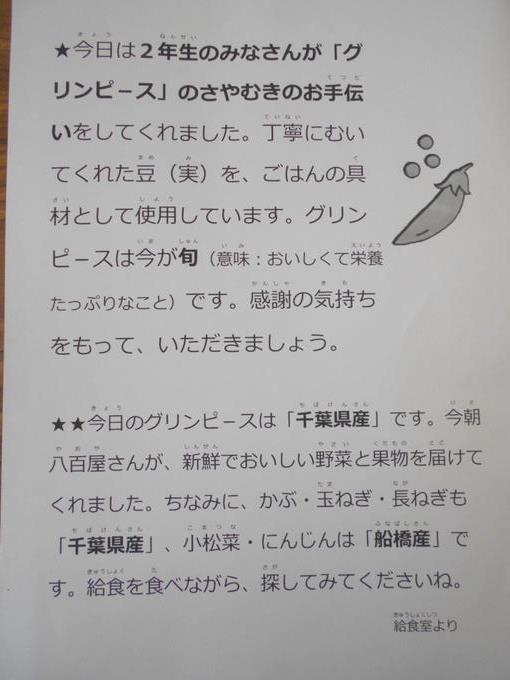 ★今日は２年生のみなさんが「グ
リンピース」のさやむきのお手伝
いをしてくれました。丁寧にむい
てくれた豆（実）を、ごはんの具
材として使用しています。グリン
ピースは今が旬（意味：おいしくて栄養
たっぷりなこと）です。感謝の気持ち
をもって、いただきましょう。
★★今日のグリンピースは「千葉県産」です。今朝
八百屋さんが、新鮮でおいしい野菜と果物を届けて
くれました。ちなみに、かぶ・玉ねぎ・長ねぎも
「千葉県産」、小松菜・にんじんは「船橋産」で
す。給食を食べながら、探してみてくださいね。
給食室より